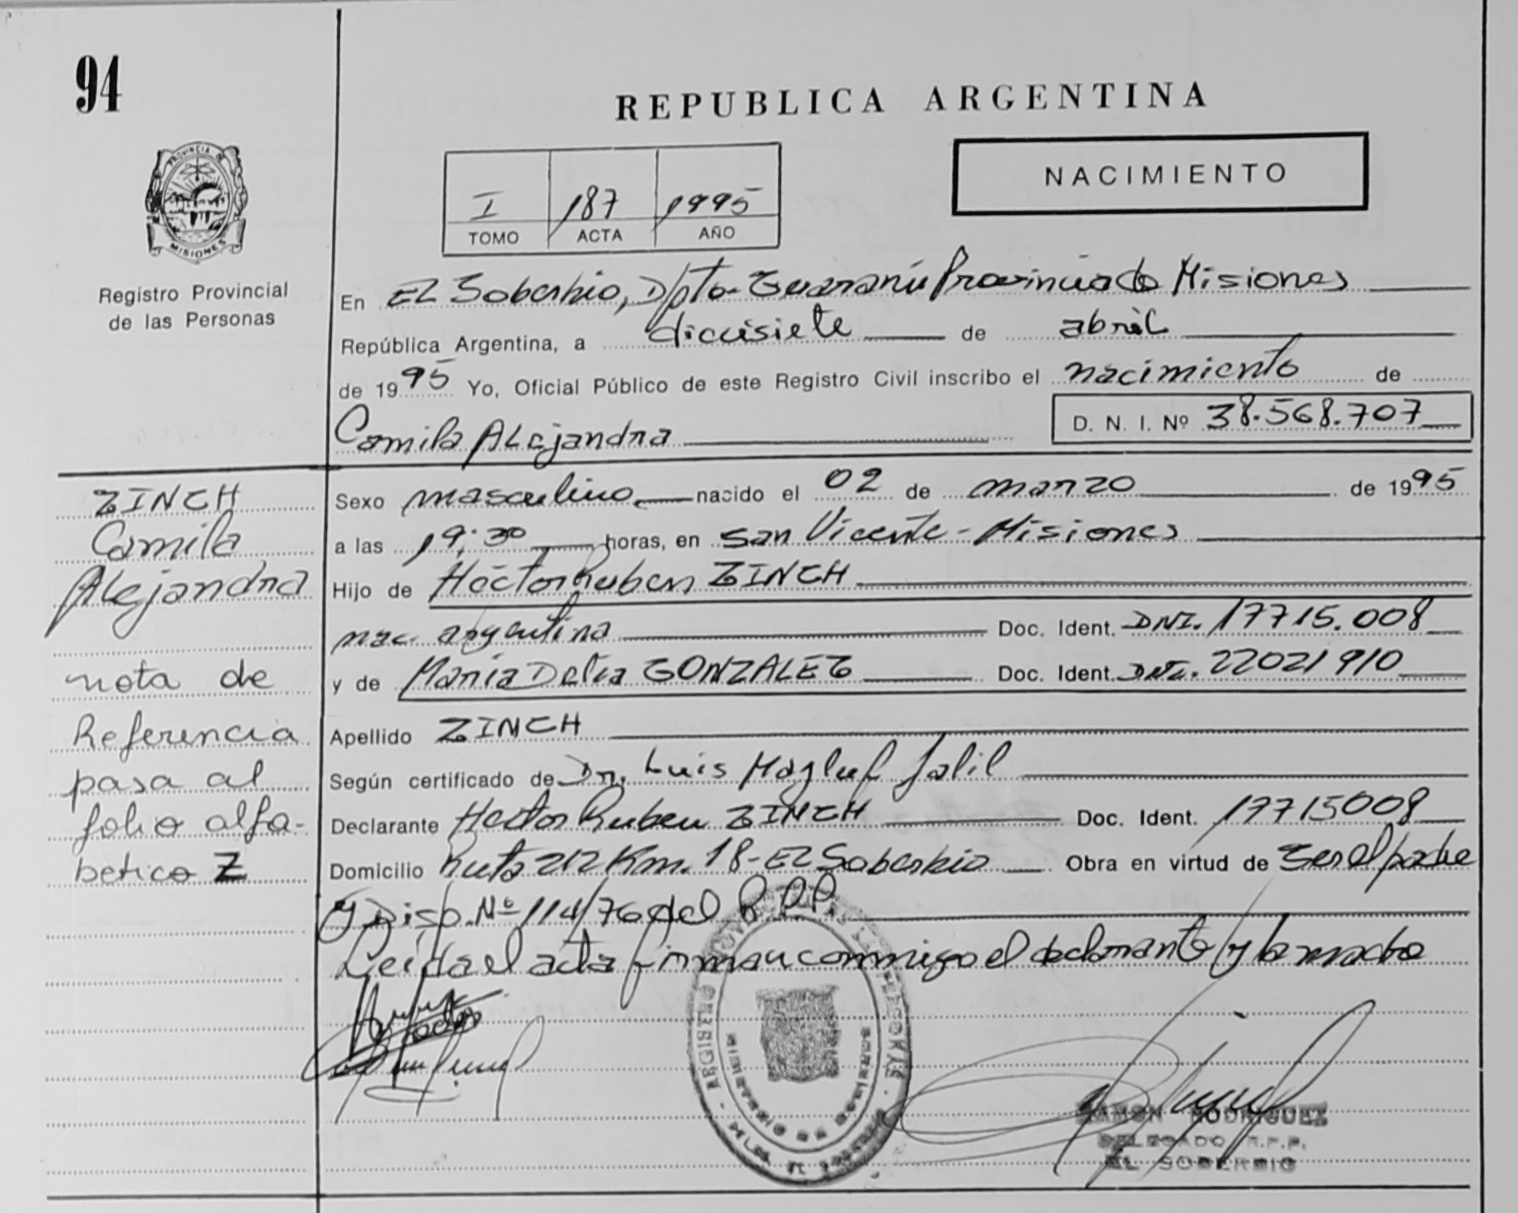 94
REPUBLICA ARGENTINA
PROVINCIA DE
MISIONES
Registro Provincial
de las Personas
I 187 1995
TOMO ACTA AÑO
NACIMIENTO
En EL Soberbio, Dpto. Guaraní Provincia de Misiones
República Argentina, a diecisiete de abril
de 1995 Yo, Oficial Público de este Registro Civil inscribo el nacimiento de
Camila Alejandra
D. N. I. Nº 38.568.707
ZINCH
Camila
Alejandra
nota de
Referencia
pasa al
folio alfa-
betico Z
Sexo masculino nacido el 02 de marzo de 1995
a las 19:30 horas, en San Vicente - Misiones
Hijo de Héctor Ruben ZINCH
nac. argentina Doc. Ident. DNI. 17715.008
y de María Delia GONZALEZ Doc. Ident. DNI. 22021910
Apellido ZINCH
Según certificado de Dr. Luis Jalil
Declarante Hector Ruben ZINCH Doc. Ident. 17715008
Domicilio Ruta 212 Km. 18 - EL Soberbio Obra en virtud de ser el padre
y Disp. Nº 114/76 del R.P.P.
Leida el acta firman conmigo el declarante y la madre
RAMON RODRIGUEZ
DELEGADO R.P.P.
EL SOBERBIO